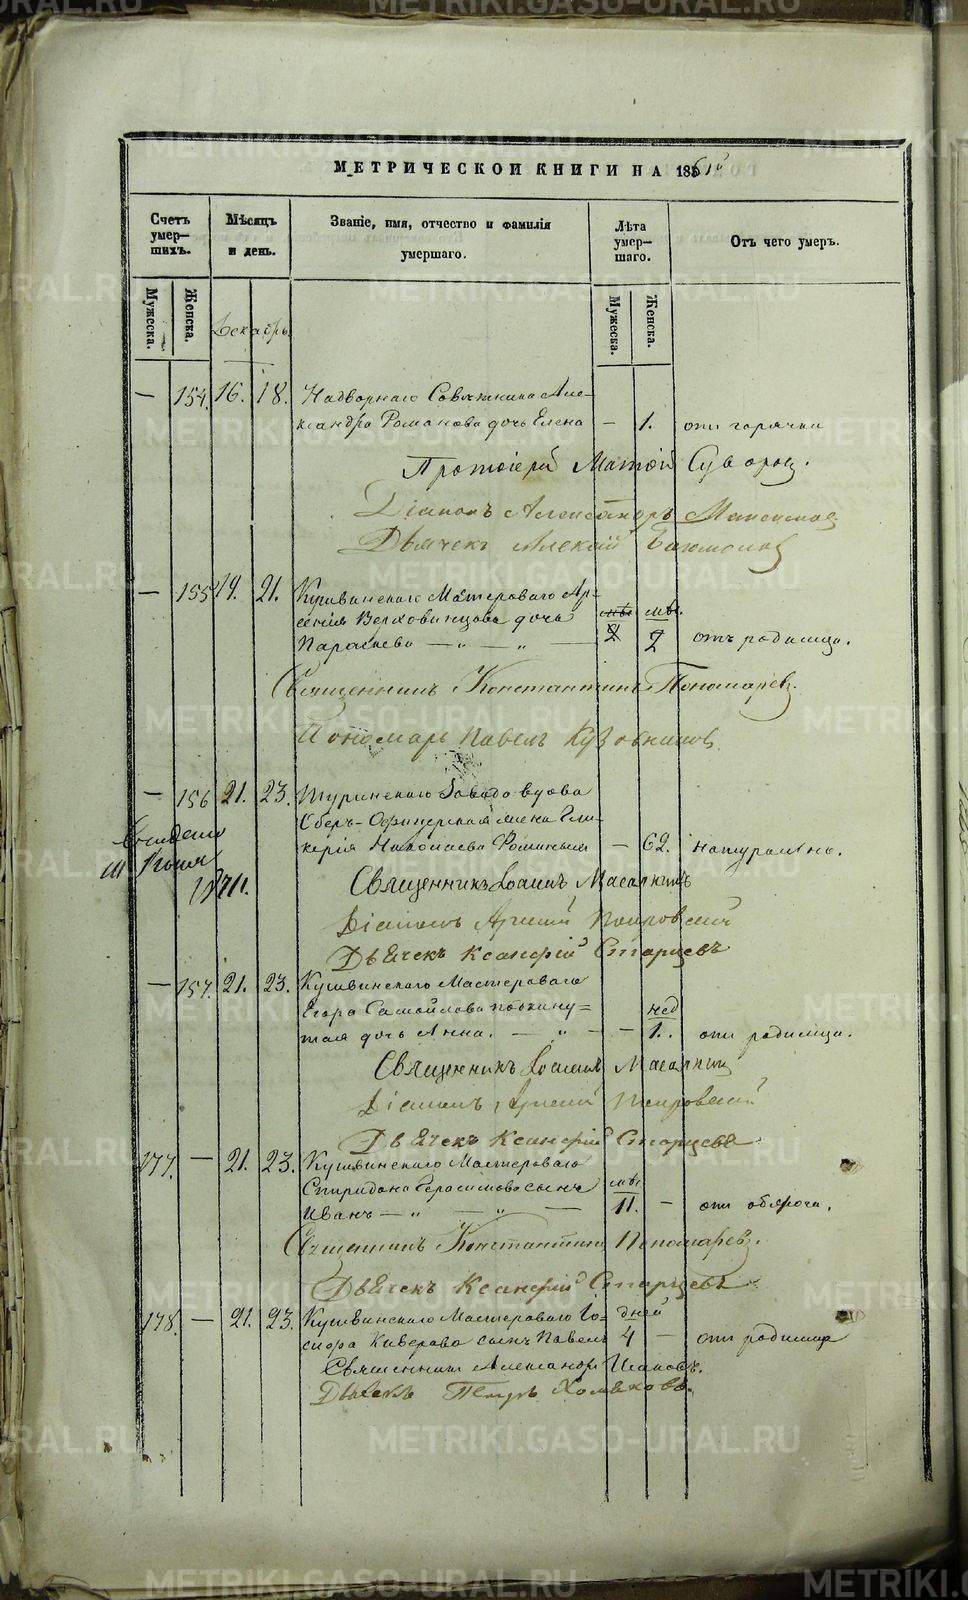 МЕТРИЧЕСКОЙ КНИГИ НА 1861й
Счетъ умер-шихъ.
Мѣсяцъ и день.
Званіе, имя, отчество и фамилія умершаго.
Лѣта умер-шаго.
Отъ чего умеръ.
Мужеска.
Женска.
Декабрь
Мужеска.
Женска.
— 154. 16. 18. Надворнаго Совѣтника Але-
ксандра Романова дочь Елена — 1. отъ горячки
Протоіерей Матѳій Суворов.
Діаконъ Александръ
Дьячекъ Алексій
— 155 19. 21. Кушвинскаго Мастероваго Ар-
сенія Верховинцова дочь мѣс мѣс.
Параскева — „ — „ — 2 2 отъ родимца.
Священникъ Константинъ Пономаревъ.
Пономарь Павелъ Кузовниковъ
— 156 21. 23. Туринскаго Завода вдова
Оберъ-Офицерская жена Гли-
керія Николаева Фоминыхъ — 62. натурально.
1871.
Священникъ Іоаннъ Масаркинъ
Діаконъ Арсеній
Дьячекъ Ксанфій Старцевъ
— 157. 21. 23. Кушвинскаго Мастероваго
Егора Самойлова подкину-
нед
тая дочь Анна. — „ — — 1. отъ родимца.
Священникъ Іоаннъ Масаркин
Діаконъ Арсеній
Дьячекъ Ксанфій Старцевъ
177. — 21. 23. Кушвинскаго Мастероваго
Спиридона Герасимова сынъ мѣс
Иванъ — „ — „ — 11. — отъ
Священникъ Константинъ Пономаревъ.
Дьячекъ Ксанфій Старцевъ
178. — 21. 23. Кушвинскаго Мастероваго Іо- дней
сифа Киверова сынъ Павелъ 4 — отъ родимца
Священникъ Александръ
Дьячекъ Петръ Хомяковъ.
METRIKI.GASO-URAL.RU